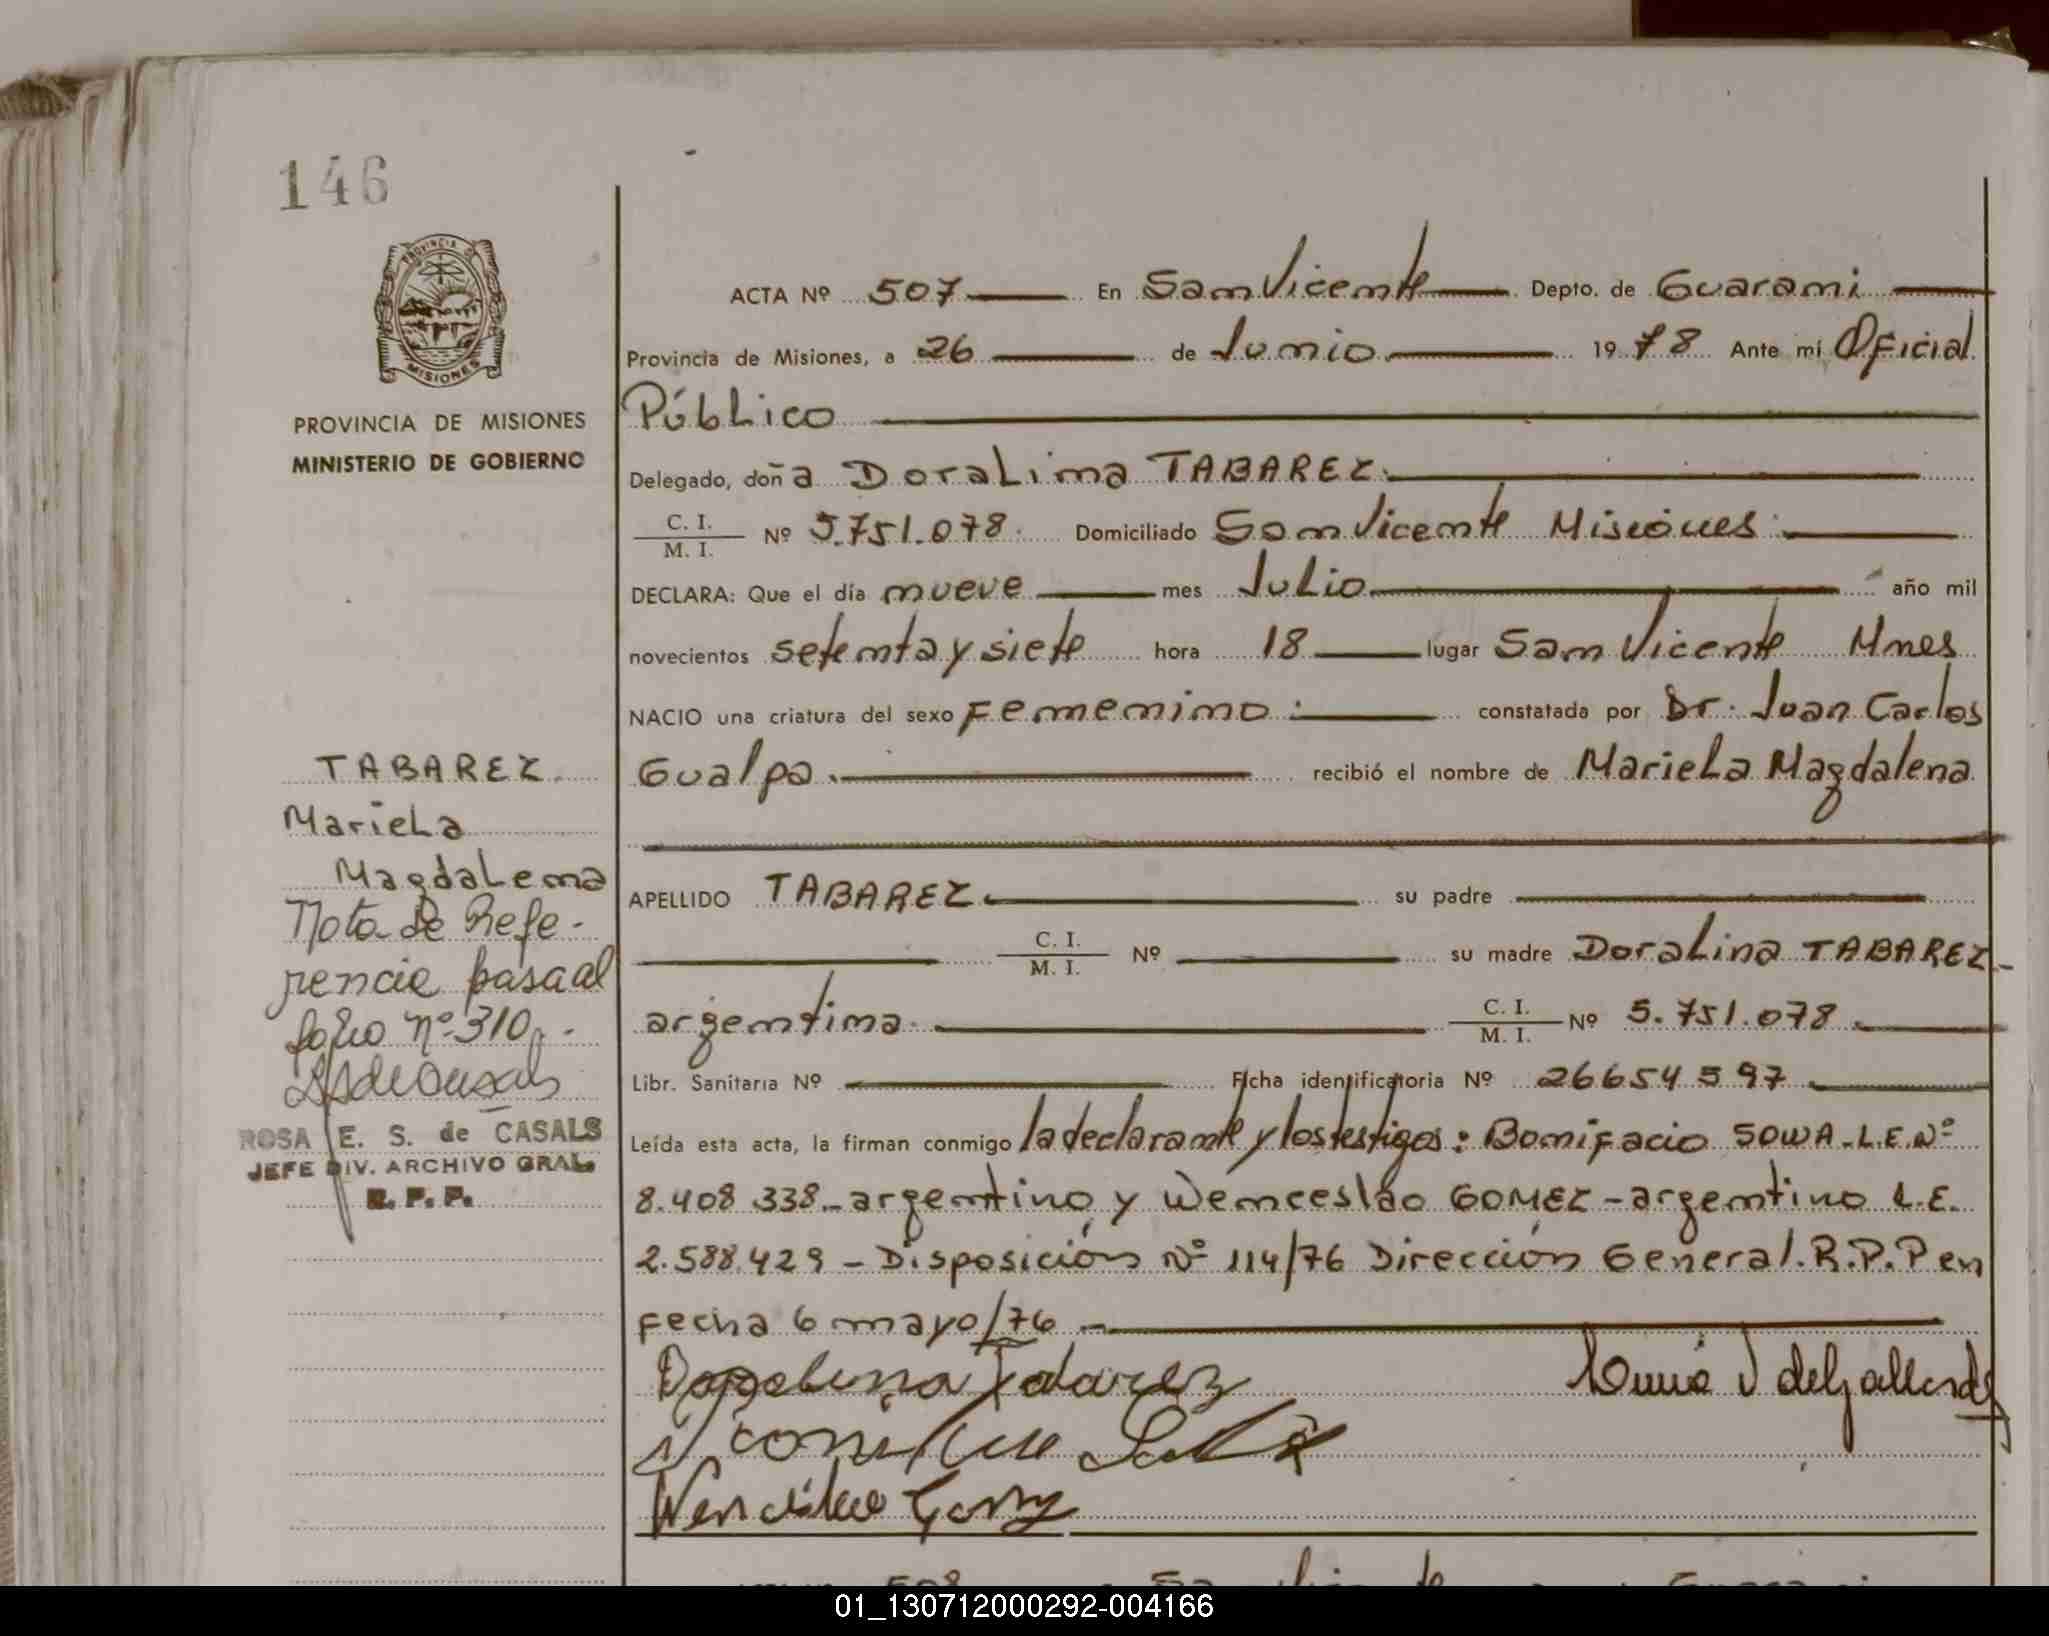 146
PROVINCIA DE MISIONES
PROVINCIA DE MISIONES
MINISTERIO DE GOBIERNO
TABAREZ.
Mariela
Magdalena
Nota de Refe-
rencia pasa al
folio nº 310.-
ROSA E. S. de CASALS
JEFE DIV. ARCHIVO GRAL.
R. P. P.
ACTA Nº 507 En San Vicente Depto. de Guarani
Provincia de Misiones, a 26 de Junio 1978 Ante mí Oficial
Público
Delegado, doña Doralina TABAREZ.
C. I. / M. I. Nº 5.751.078. Domiciliado San Vicente Misiones.
DECLARA: Que el día nueve mes Julio año mil
novecientos setenta y siete hora 18 lugar San Vicente Mnes
NACIO una criatura del sexo Femenino: constatada por Dr. Juan Carlos
Gualpa. recibió el nombre de Mariela Magdalena
APELLIDO TABAREZ su padre
C. I. / M. I. Nº su madre Doralina TABAREZ-
argentina. C. I. / M. I. Nº 5.751.078.
Libr. Sanitaria Nº Ficha identificatoria Nº 26654597
Leída esta acta, la firman conmigo la declarante y los testigos: Bonifacio SOWA-L.E.Nº
8.408.338-argentino y Wenceslao GOMEZ-argentino L.E.
2.588.429 - Disposición Nº 114/76 Dirección General.R.P.P en
fecha 6 mayo/76.-
Doralina Tabarez
01_130712000292-004166